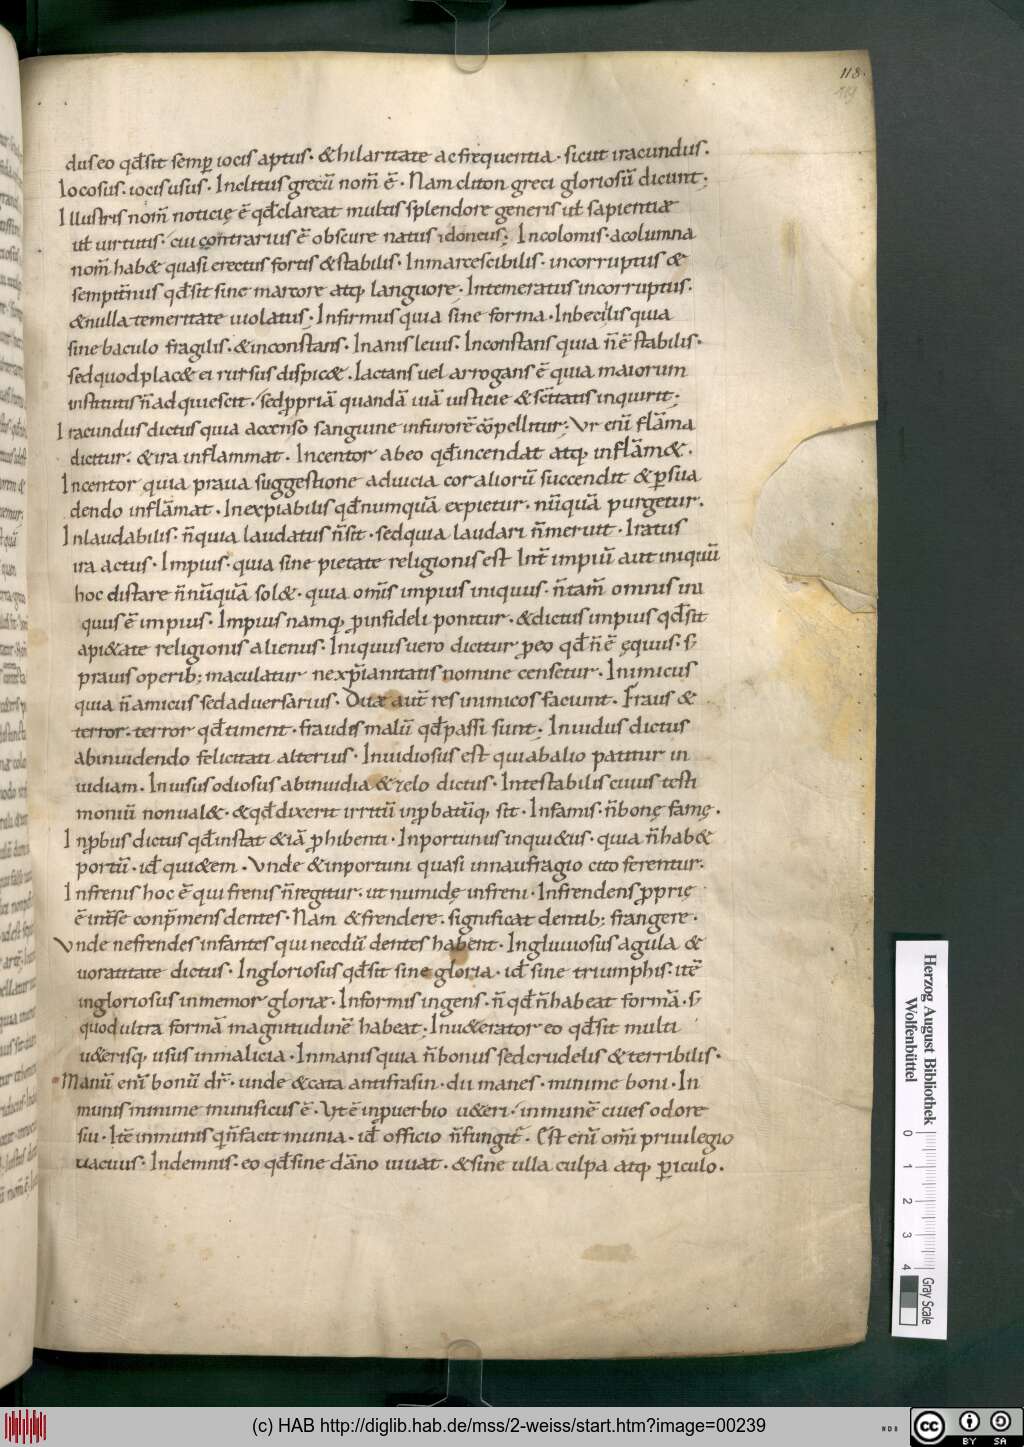 dus eo qđ sit semꝑ iocis aptus· & hilaritate ac frequentia· sicut iracundus·
Iocosus· iocis usus· Inclitus grecū nom̄ ē· Nam cliton greci gloriosū dicunt;
Illustris nom̄ noticię ē qđ clareat multis splendore generis ut̄ sapientiæ
ut̄ uirtutis· cui contrarius ē obscure natus idoneus; Incolomis· a columna
nom̄ hab& quasi erectus fortis & stabilis· Inmarcescibilis· incorruptus &
sempit̄nus qđ sit sine marcore atq; languore· Intemeratus incorruptus·
& nulla temeritate uiolatus· Infirmus quia sine forma· Inbecilis quia
sine baculo fragilis· & inconstans· Inanis leuis· Inconstans quia n̄ ē stabilis·
sed quod plac& ei rursus dispic&· Iactans uel arrogans ē quia maiorum
institutis n̄ adquiescit· sed ꝓpriā quandā uiā iusticie & sc̄itatis inquirit;
Iracundus dictus quia accenso sanguine in furorē cōpellitur; Vr enī flāma
dicitur· & ira inflammat· Incentor ab eo qđ incendat atq; inflām&·
Incentor quia praua suggestione ad uicia cor aliorū succendit & ꝑsua
dendo inflāmat· Inexpiabilis qđ numquā expietur· nūquā purgetur·
Inlaudabilis· n̄ quia laudatus n̄ sit· sed quia laudari n̄ meruit· Iratus
ira actus· Impius· quia sine pietate religionis est Int̄ impiū aut iniquū
hoc distare n̄nūquā sol&· quia om̄s impius iniquus· n̄ tam̄ omnis ini
quus ē impius· Impius namq; ꝑ infideli ponitur· & dictus impius qđ sit
a pi&ate religionis alienus· Iniquus uero dicitur ꝑ eo qđ n̄ ē ęquus· s;
prauis operib; maculatur ne xp̄ianitatis nomine censetur· Inimicus
quia n̄ amicus sed aduersarius· Duæ aut̄ res inimicos faciunt· Fraus &
terror· terror qđ timent· fraudis malū qđ passi sunt· Inuidus dictus
ab inuidendo felicitati alterius· Inuidiosus est qui ab alio patitur in
uidiam· Inuisus odiosus ab inuidia & zelo dictus· Intestabilis cuius testi
moniū non ual&· & qđ dixerit irritū inꝓbatūq; sit· Infamis· n̄ bonę famę·
Inꝓbus dictus qđ instat & iā ꝓhibenti· Inportunus inqui&us· quia n̄ hab&
portū· id̄ qui&em· Vnde & inportuni quasi in naufragio cito ferentur·
Infrenis hoc ē qui frenis n̄ regitur· ut numidę infreni· Infrendens ꝓprię
ē int̄ se conp̄mens dentes· Nam & frendere· significat dentib; frangere·
Vnde nefrendes infantes qui necdū dentes habent· Ingluuiosus a gula &
uoratitate dictus· Ingloriosus qđ sit sine gloria· id̄ sine triumphis· itē
ingloriosus inmemor gloriæ· Informis ingens· n̄ qđ n̄ habeat formā· s;
quod ultra formā magnitudinē habeat; Inu&erator eo qđ sit multi
u&erisq; usus in malicia· Inmanis quia n̄ bonus sed crudelis & terribilis·
Manū enī bonū dr̄· unde & cata antifrasin· dii manes· minime boni· In
munis minime munificus ē· Vt ē in ꝓuerbio u&eri· inmunē ciues odore
sui· Itē inmunis q n̄ facit munia· id̄ officio n̄ fungit̄· Est enī om̄i priuilegio
uacuus· Indemnis· eo qđ sine dāno uiuat· & sine ulla culpa atq; ꝑiculo·
118·
119
Herzog August Bibliothek
Wolfenbüttel
0 1 2 3 4
Gray Scale
(c) HAB http://diglib.hab.de/mss/2-weiss/start.htm?image=00239
cc BY SA